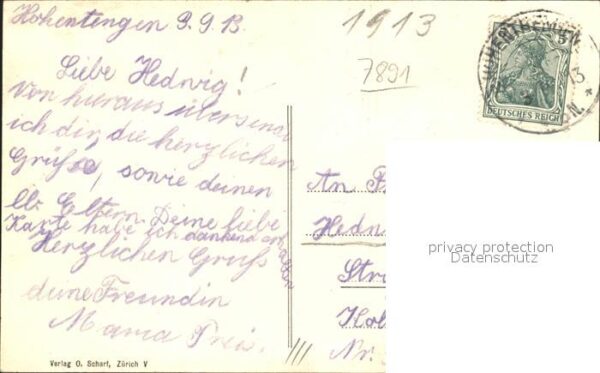 Hohentengen 9.9.13.
1913
7891
Liebe Hedwig!
Von hieraus übersend
ich dir die herzlichen
Grüße, sowie deinen
lb. Eltern. Deine liebe
Karte habe ich dankend erhalten
Herzlichen Gruß
deine Freundin
HOHENTENGEN
5
DEUTSCHES REICH
13
An
Hedw
Str
Nr.
privacy protection
Datenschutz
Verlag O. Scharf, Zürich V